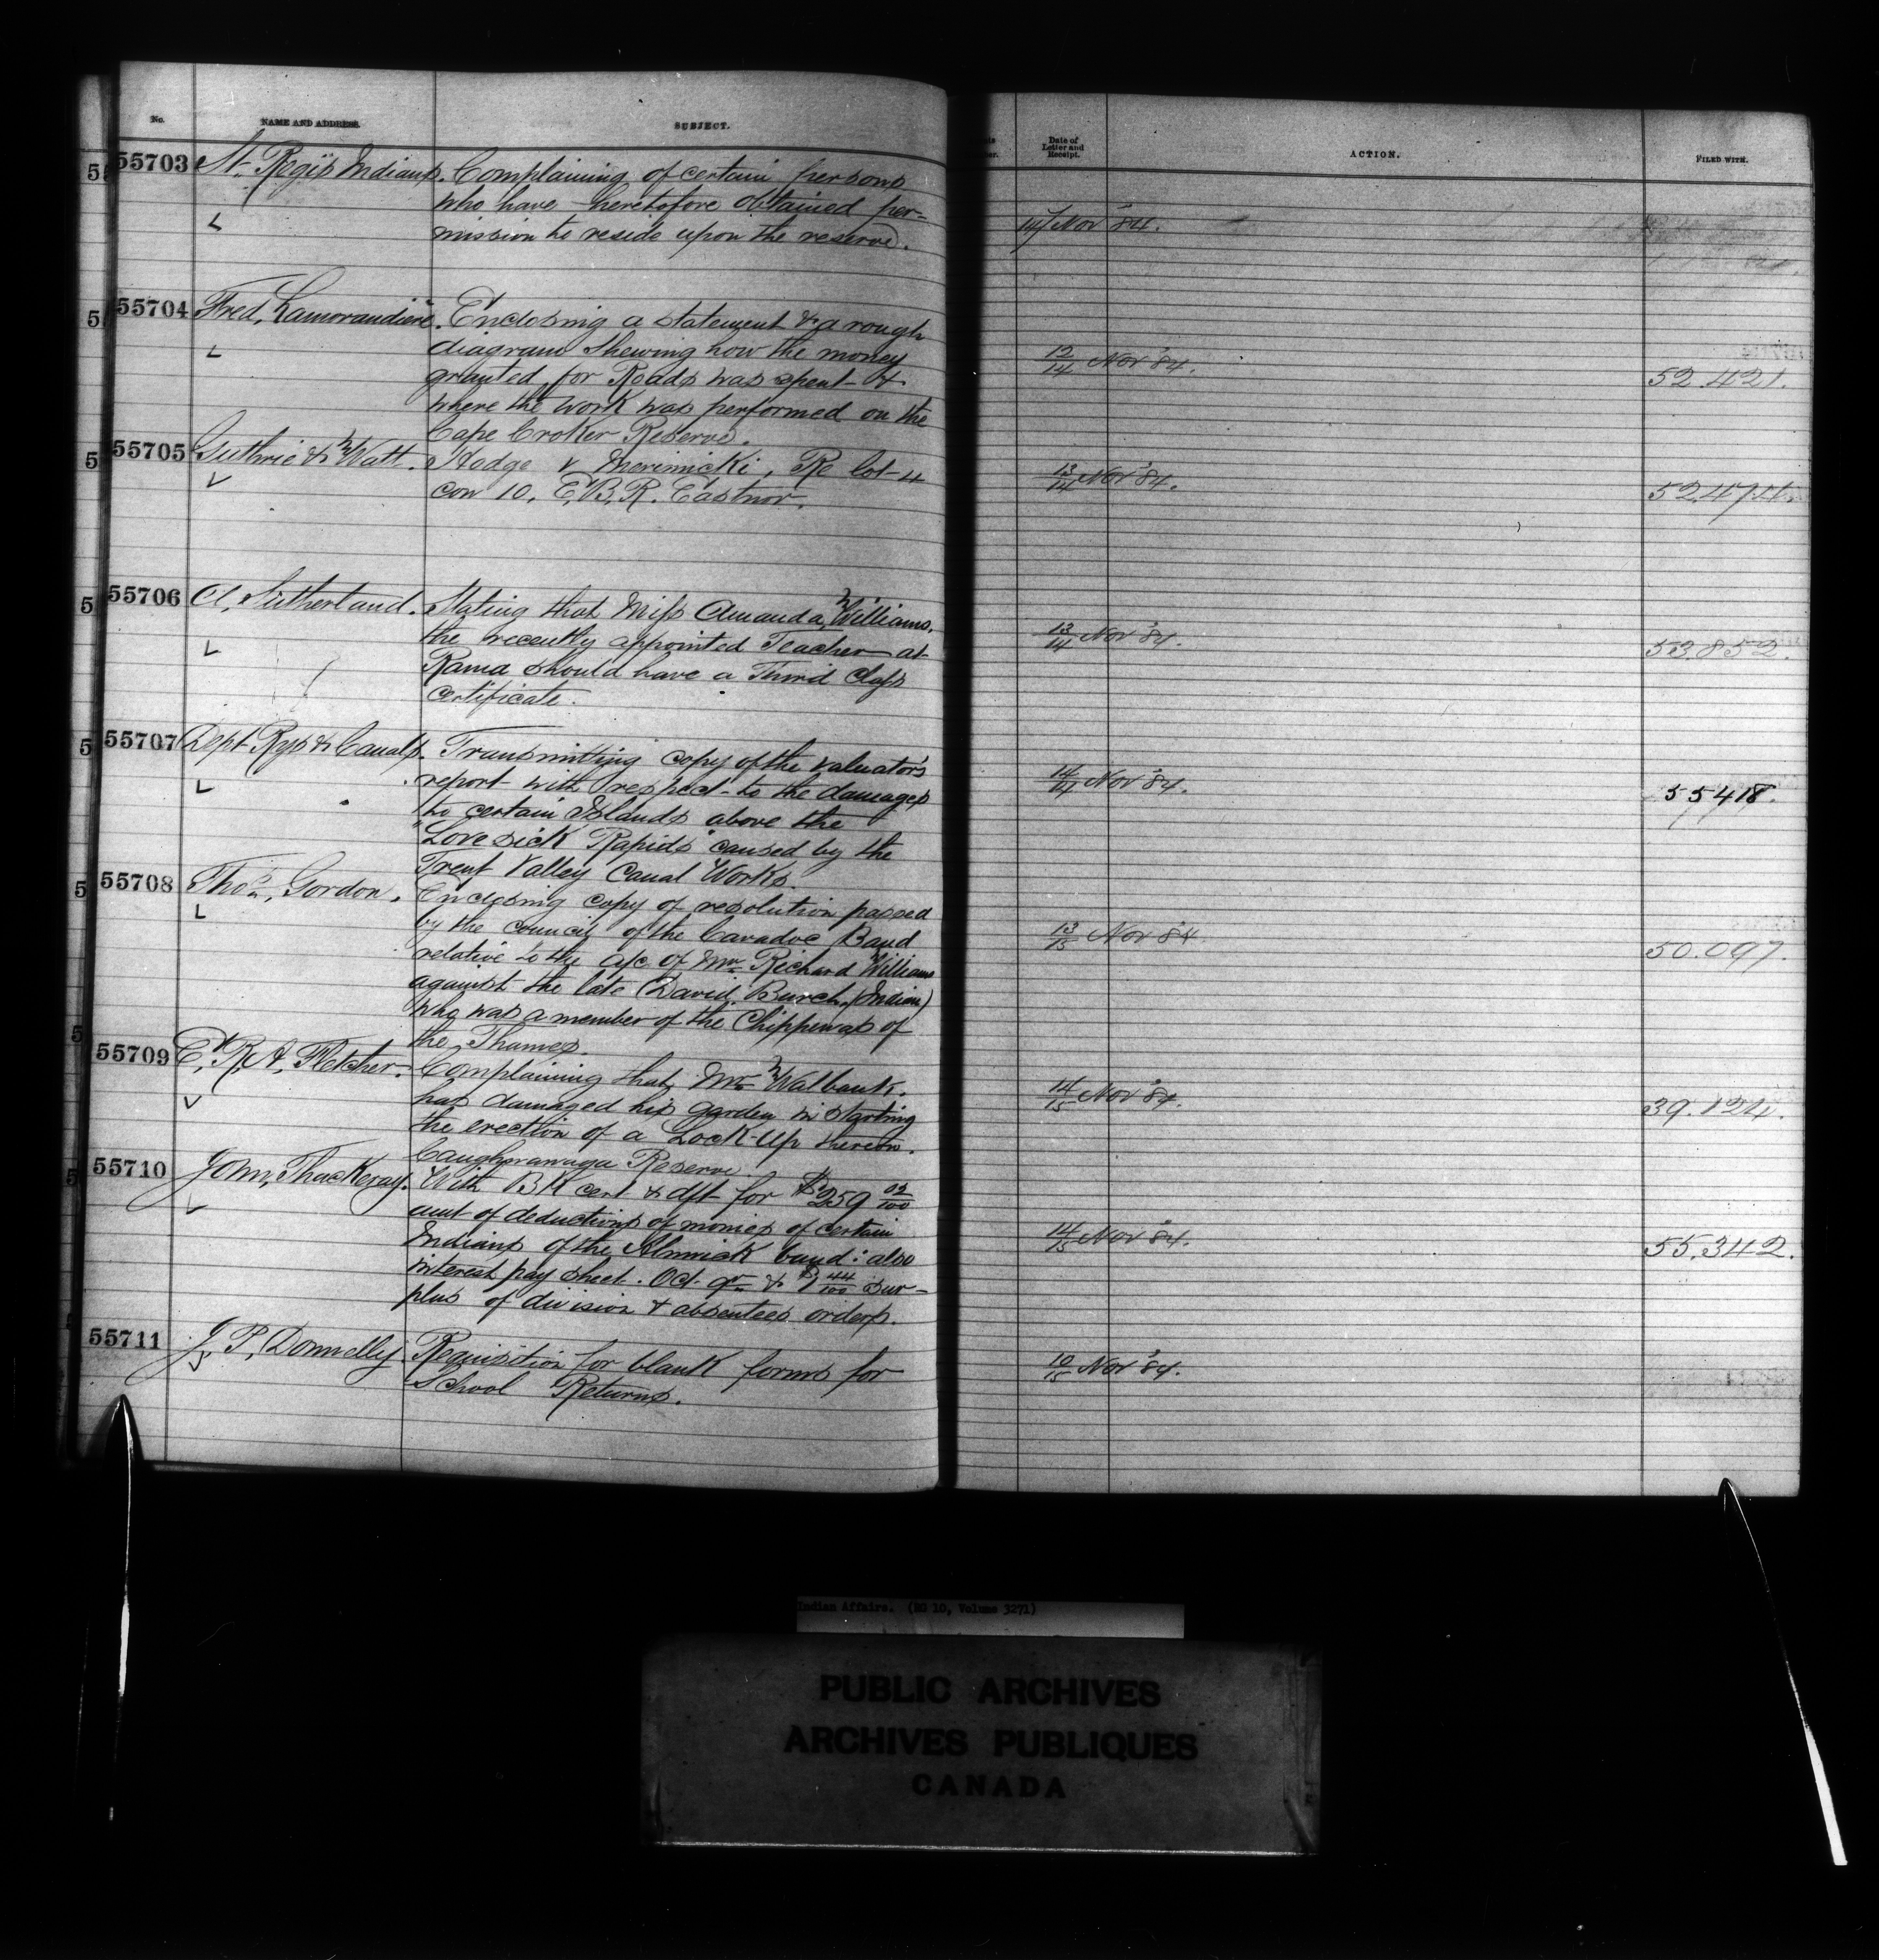 No. NAME AND ADDRESS. SUBJECT.
Date of Letter and Receipt. ACTION. FILED WITH.
55703 St. Regis Indians. Complaining of certain persons
who have heretofore obtained per=
mission to reside upon the reserve.
14/ Nov '84.
55704 Fred, Lamorandiere. Enclosing a statement & a rough
diagram shewing how the money
granted for Roads was spent &
where the work was performed on the
Cape Croker Reserve.
12/14 Nov '84. 52.421.
55705 Guthrie & Watt. Hodge v Merimicki, Re lot 4
con 10. E.B.R. Eastnor.
13/14 Nov '84. 52.474.
55706 A, Sutherland. Stating that Miss Amanda, Williams.
the recently appointed Teacher at
Rama should have a Third Class
certificate.
13/14 Nov '84. 53.852.
55707 Dept Rys & Canals. Transmitting copy of the valuators
report with respect to the damages
to certain Islands above the
"Lovesick Rapids" caused by the
Trent Valley Canal Works.
14/14 Nov '84. 55418.
55708 Thos, Gordon. Enclosing copy of resolution passed
by the council of the Caradoc Band
relative to the a/c of Mr Richard Williams
against the late David, Burch, (Indian)
who was a member of the Chippewas of
the Thames.
13/15 Nov '84 50.097.
55709 E, R, A, Fletcher. Complaining that, Mr Walbank.
has damaged his garden in starting
the erection of a Lock-Up thereon.
Caughnawaga Reserve.
14/15 Nov '84. 39.124.
55710 John, Thackeray. With BK cert & dft for $259 02/100
amt of deductions of monies of certain
Indians of the Alnwick band: also
interest pay sheet. Oct. qr & $1 44/100 sur-
plus of division & absentees orders.
14/15 Nov '84. 55.342.
55711 J, P, Donnelly Requisition for blank forms for
School Returns.
10/15 Nov '84.
Indian Affairs. (RG 10, Volume 3271)
PUBLIC ARCHIVES
ARCHIVES PUBLIQUES
CANADA